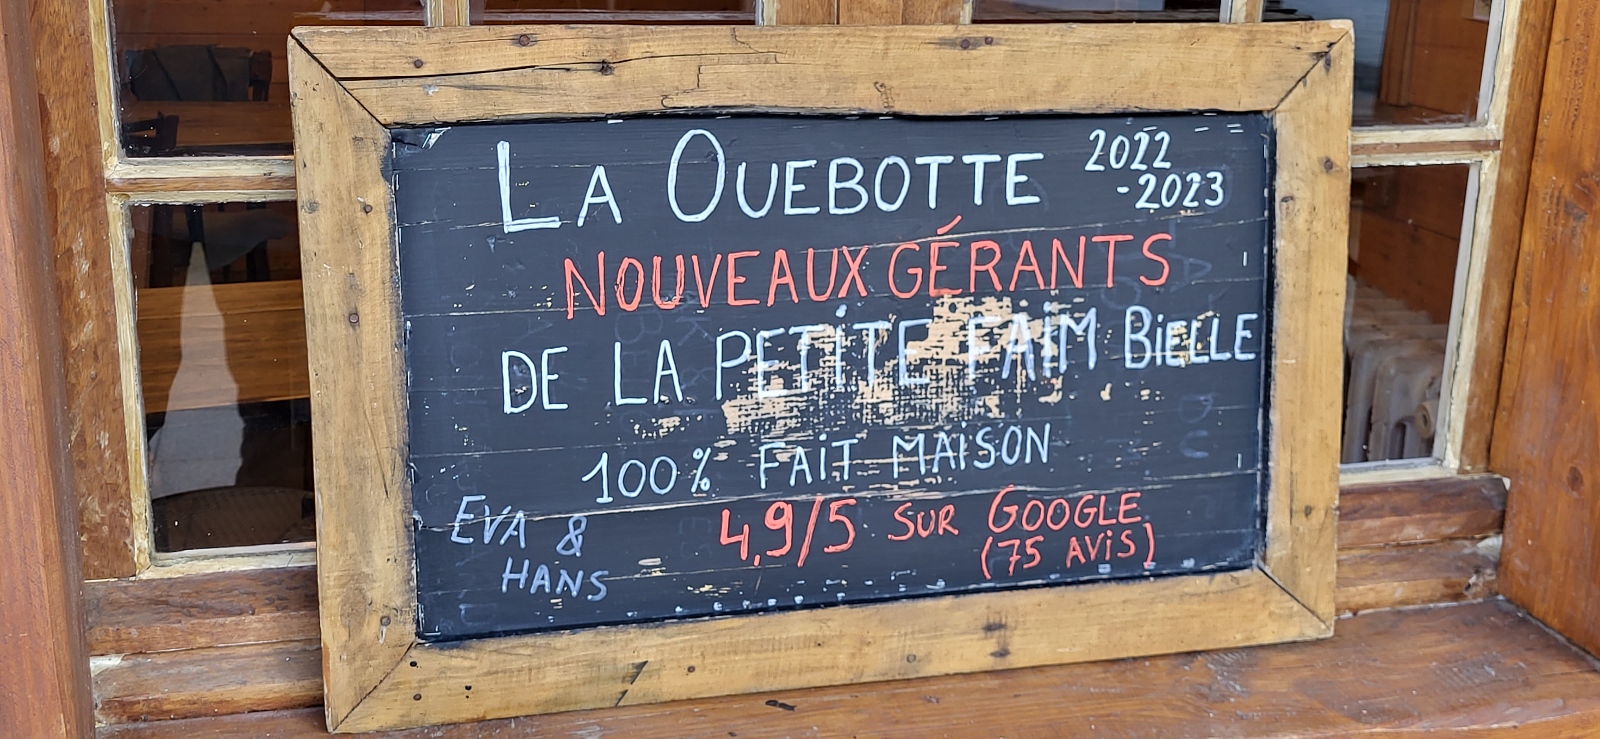 LA OUEBOTTE 2022
-2023
NOUVEAUX GÉRANTS
DE LA PETITE FAIM BIELLE
100% FAIT MAISON
EVA &
HANS
4,9/5 SUR GOOGLE
(75 AVIS)